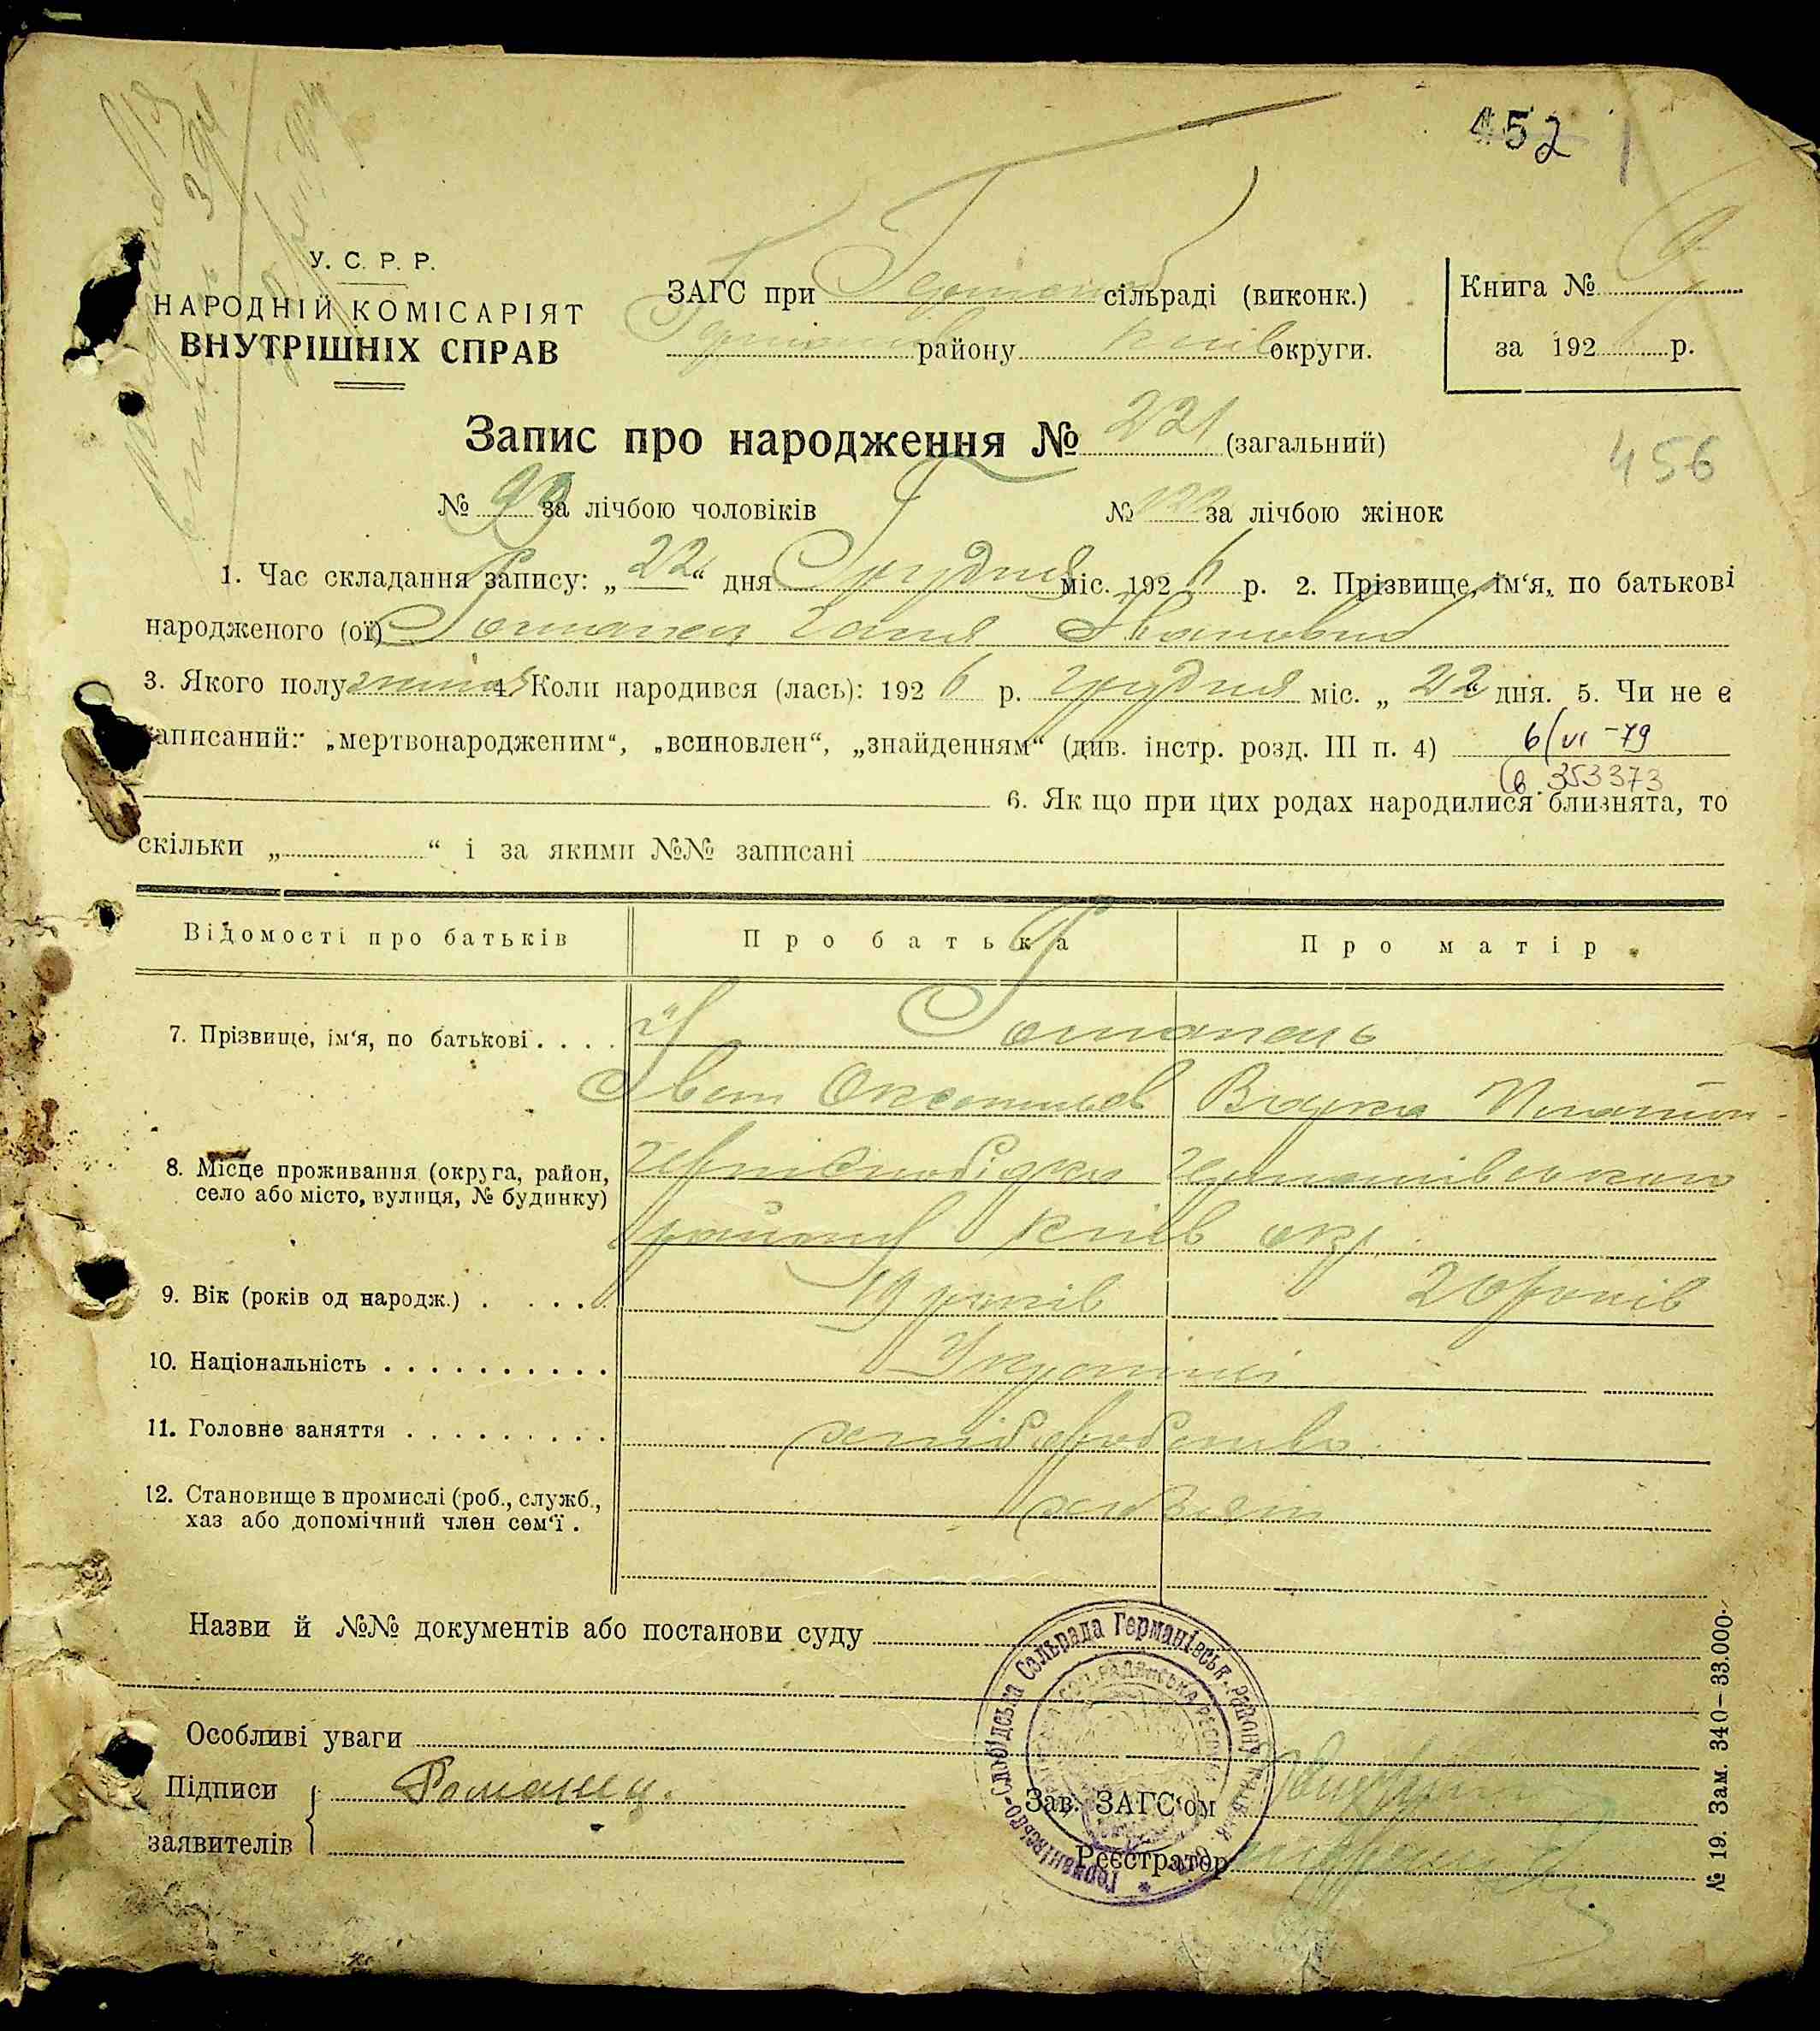 452
У. С. Р. Р.
НАРОДНІЙ КОМІСАРІЯТ
ВНУТРІШНІХ СПРАВ
ЗАГС при сільраді (виконк.)
району київ округи.
Книга №
за 192 р.
Запис про народження № 221 (загальний)
456
№ 99 за лічбою чоловіків
№ 122 за лічбою жінок
1. Час складання запису: „ 22 “ дня Грудня міс. 1926 р. 2. Прізвище, ім‘я, по батькові
народженого (ої) Романец Ганя Івановна
3. Якого полу 4. Коли народився (лась): 1926 р. грудня міс. „ 22 дня. 5. Чи не є
записаний: „мертвонародженим“, „всиновлен“, „знайденням“ (див. інстр. розд. III п. 4) 6/VI-79
353373
6. Якщо при цих родах народилися близнята, то
скільки „ “ і за якими №№ записані
Відомості про батьків
Про батька
Про матір
7. Прізвище, ім‘я, по батькові . . . .
Романець
Іван
Варка Платон
8. Місце проживання (округа, район,
село або місто, вулиця, № будинку)
Германівського
району київ окр.
9. Вік (років од народж.) . . . . . 19 років 20 років
10. Національність . . . . . . . . . . Українці
11. Головне заняття . . . . . . . . . хліборобство
12. Становище в промислі (роб., служб.,
хаз або допомічний член сем‘ї .
хазяїн
Назви й №№ документів або постанови суду
Особливі уваги
Підписи
заявителів
Романец.
Зав. ЗАГС‘ом
Реєстратор
Германівсько-Слобідська Сельрада Германівськ. району
№ 19. Зам. 340–33.000.